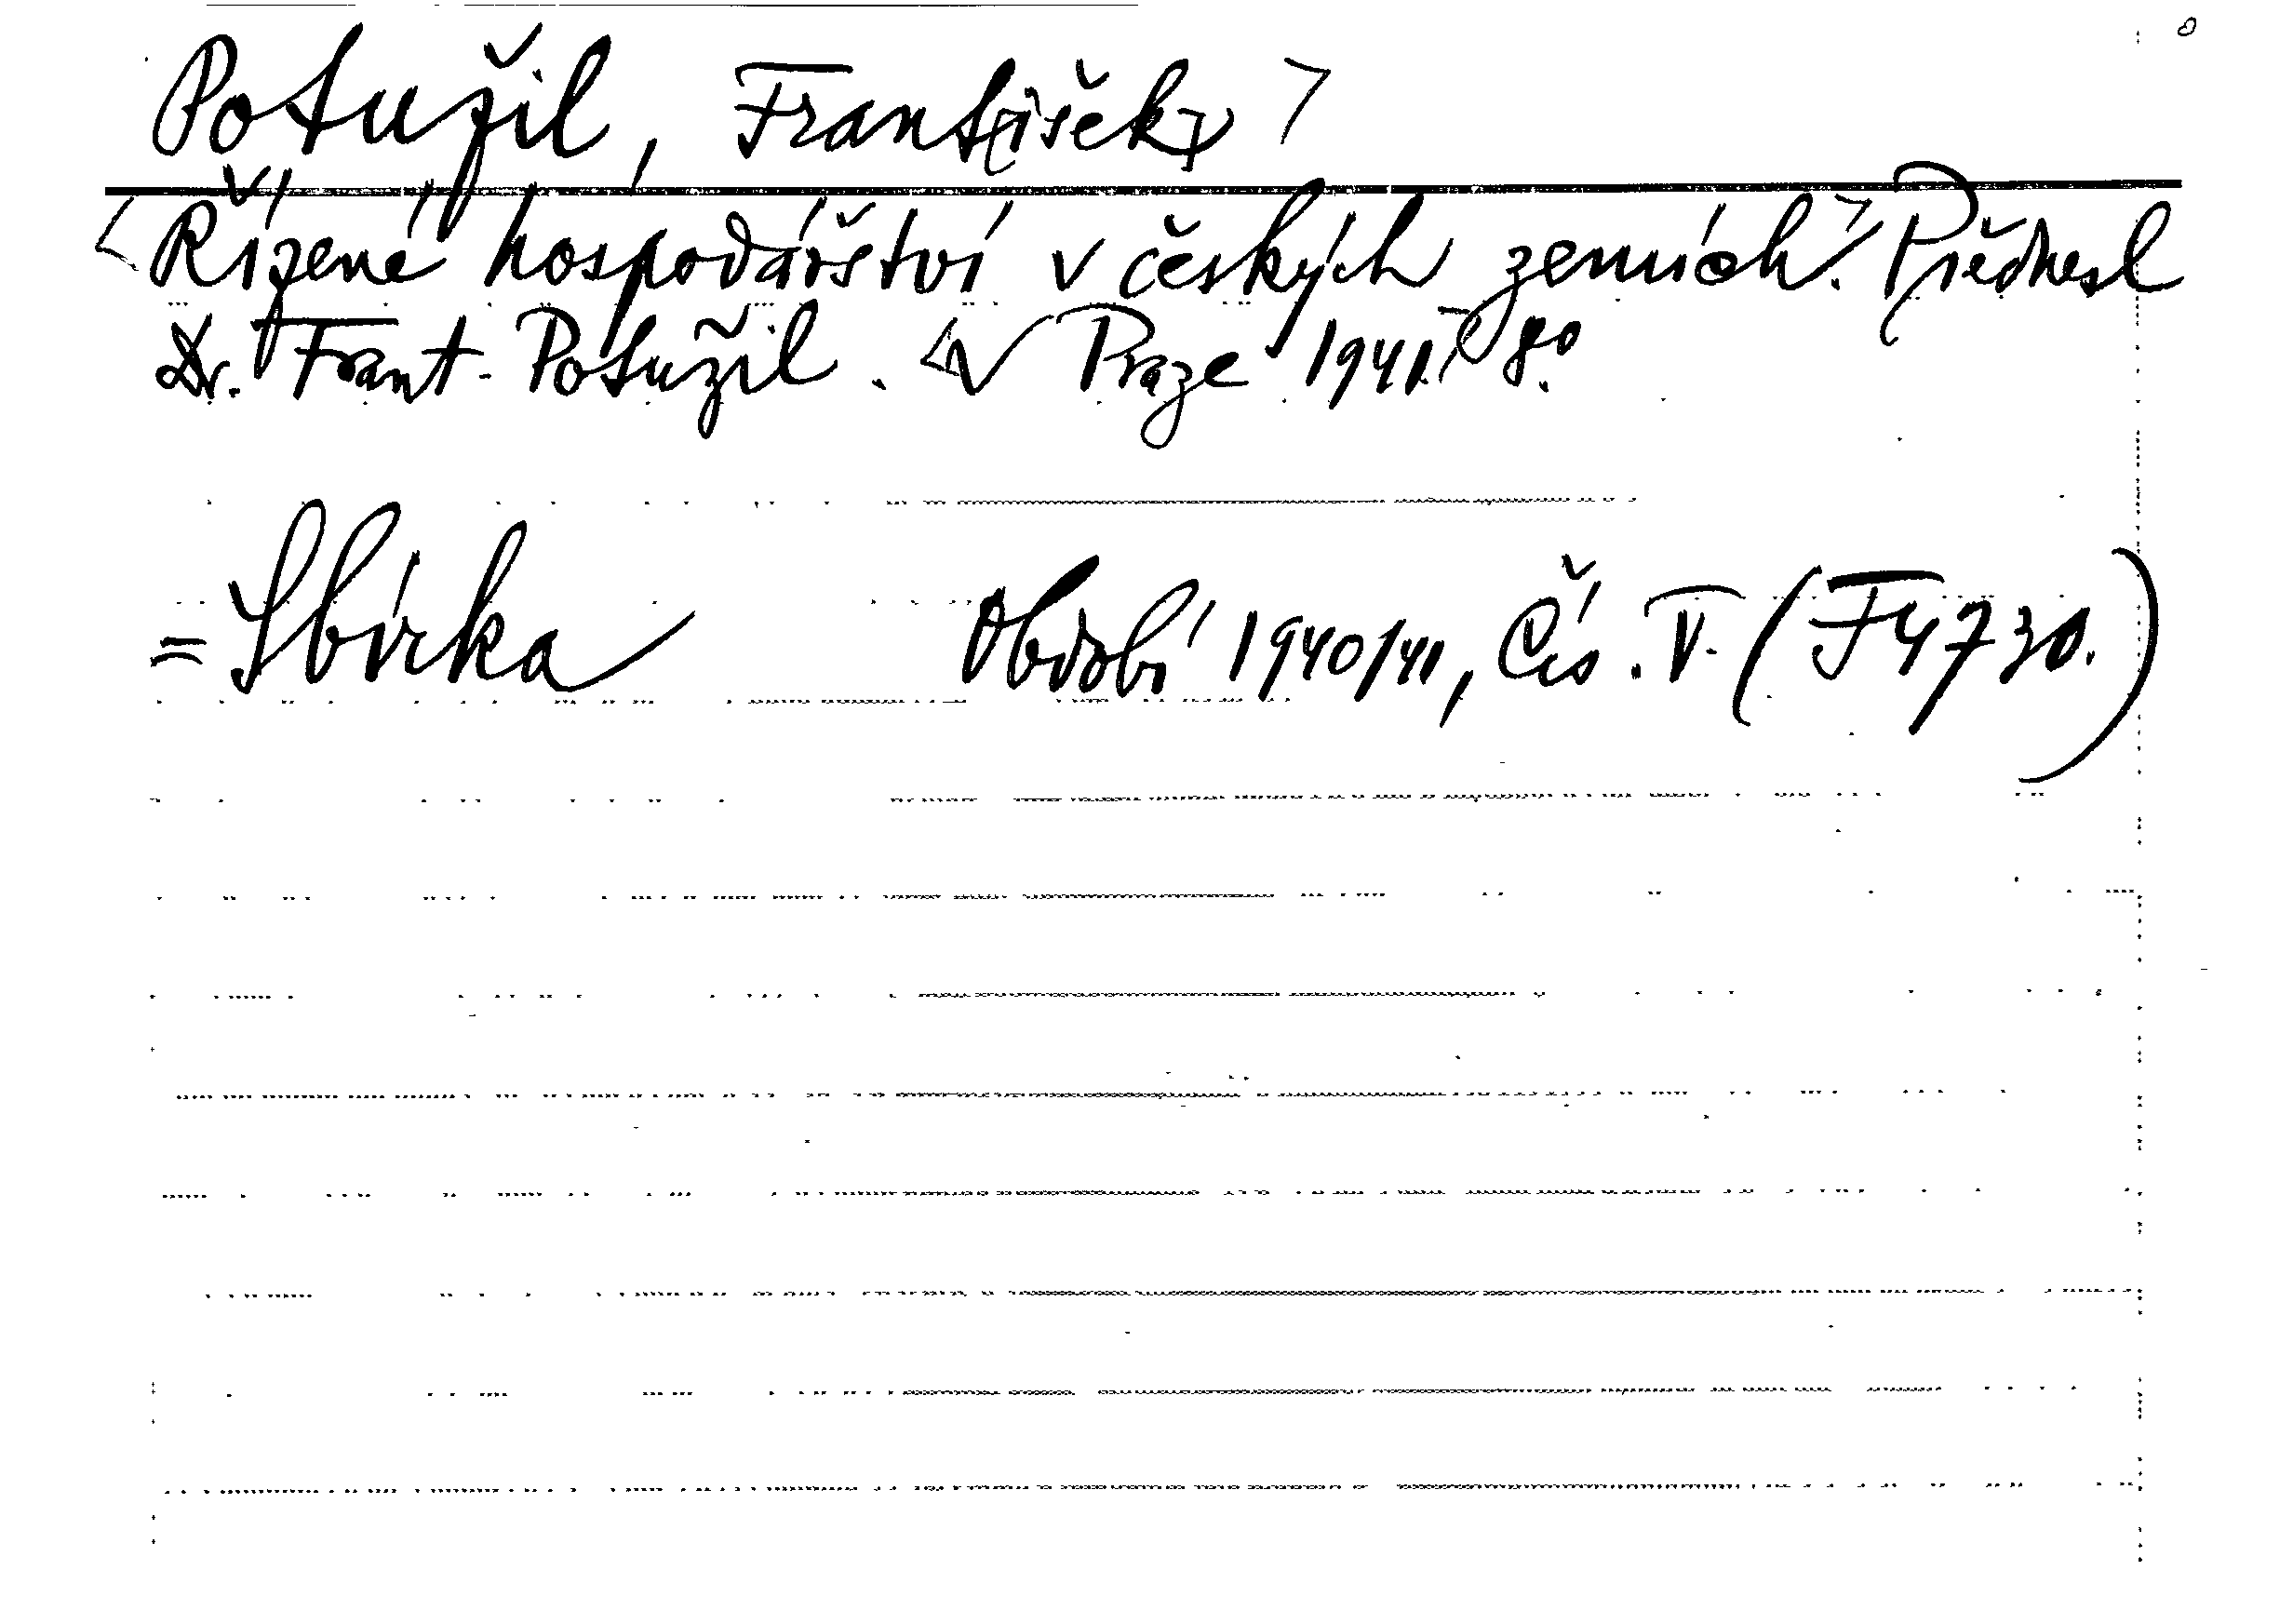 Potužil, Frant[išek]>
<Řízené hospodářství v českých zemích.> Přednesl
Dr. Frant. Potužil. <V Praze 1941.> 8°.
= Sbírka Období 1940/41, Čís. V. (F 4730.)